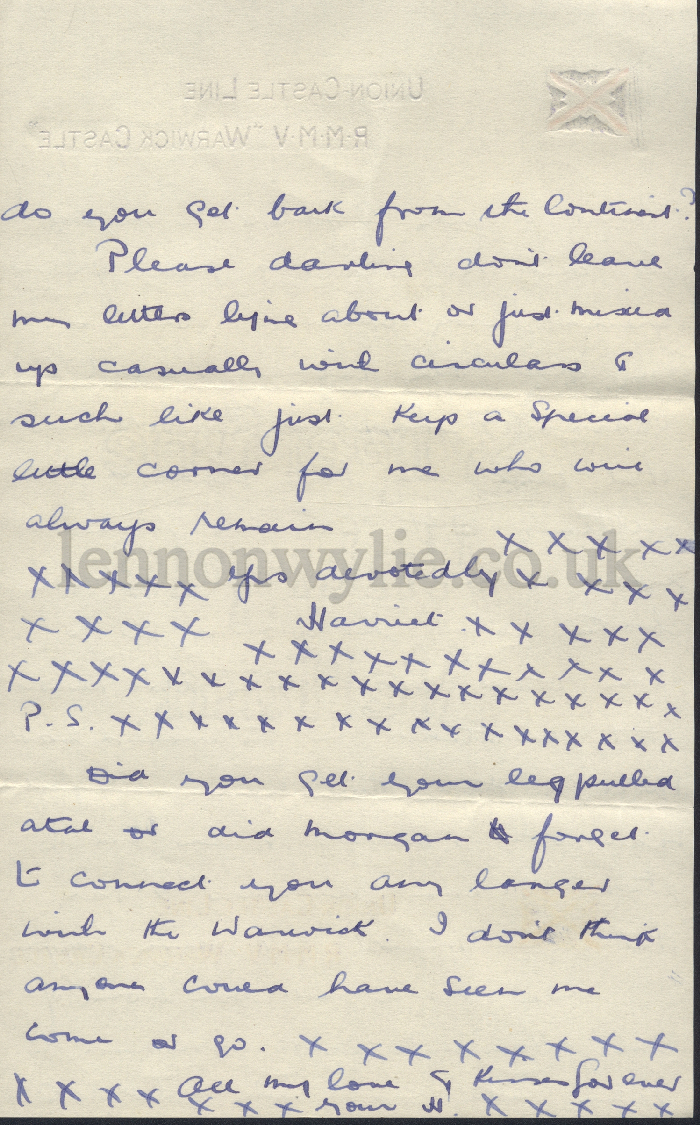 UNION-CASTLE LINE
R·M·M·V "WARWICK CASTLE"
do you get back from the Continent?
Please darling don't leave
my letters lying about or just mixed
up casually with circulars &
such like just keep a special
little corner for me who will
always remain
x x x x x
x x x x x yrs devotedly x x x x
x x x x Harriet. x x x x x
x x x x x x x x x x x
x x x x x x x x x x x x x x x x x x
P.S. x x x x x x x x x x x x x x x x
Did you get your leg pulled
atal or did Morgan forget
to connect you any longer
with the Warwick. I don't think
anyone could have seen me
come or go. x x x x x x x x
x x x x All my love & kisses for ever
x x x your H. x x x x x
lennonwylie.co.uk